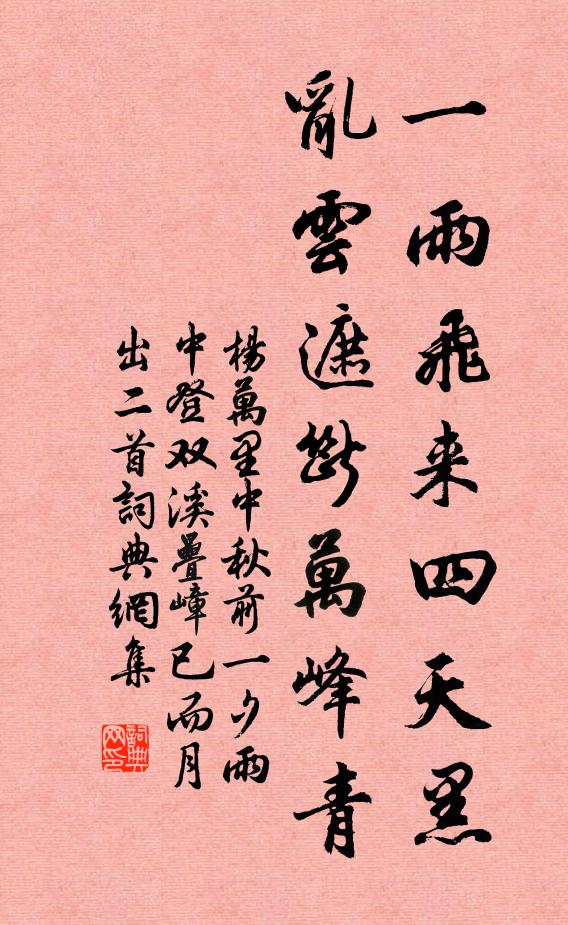 一雨飛来四天黑
亂雲遮斷萬峰青
楊萬里中秋前一夕雨
中登双溪疊嶂已而月
出二首詞典網集
詞典
网印